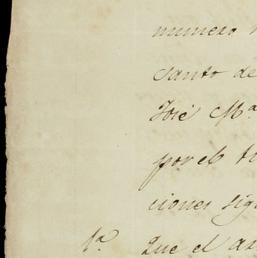 numero
santo de
José Mª
por el ti
ciones sig
1ª Que el